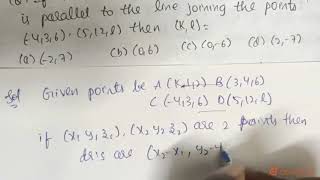 is parallel to the line joining the points
(-4,3,6), (5,12,l) then (K,l)=
(a) (-2,7) (b) (0,6) (c) (0,-6) (d) (2,-7)
Sol Given points be A(K,1,2) B(3,4,6)
C(-4,3,6) D(5,12,l)
if (x₁ y₁ z₁), (x₂ y₂ z₂) are 2 points then
dr's are (x₂-x₁, y₂-y